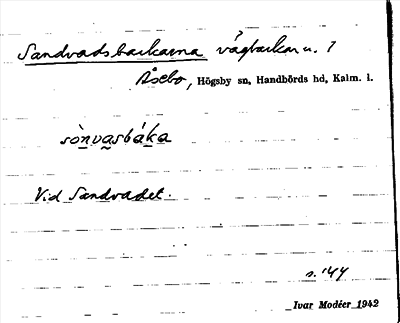 Sandvadsbackarna vägbackar u. 1
Åsebo, Högsby sn, Handbörds hd, Kalm. l.
sònvasbáka
Vid Sandvadet.
s. 144
Ivar Modéer 1942